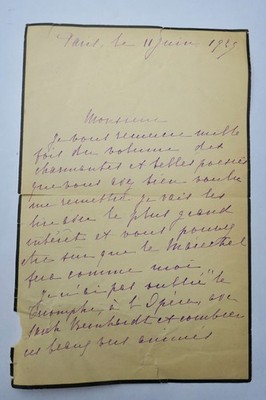 Paris, le 11 juin 1929
Monsieur
Je vous remercie mille
fois du volume des
charmantes et belles poésies
que vous avez bien voulu
me remettre je vais les
lire avec le plus grand
intérêt et vous pouvez
être sûr que le Maréchal
fera comme moi
Je n'ai pas oublié le
triomphe à l'Opéra, avec
Sarah Bernhardt et combien
ces beaux vers animés